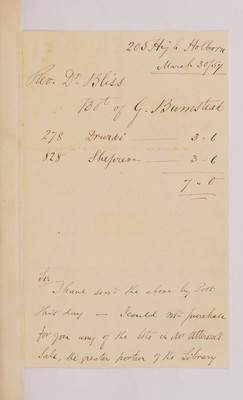 205 High Holborn
March 30/57
Rev. Dr. Bliss
Bot of G. Bumstead
278 3-6
828 3-6
7-0
Sir
I have sent the above by Post
this day — I could not purchase
for you any of the lots in Mr Utterson's
Sale, the greater portion of the Library